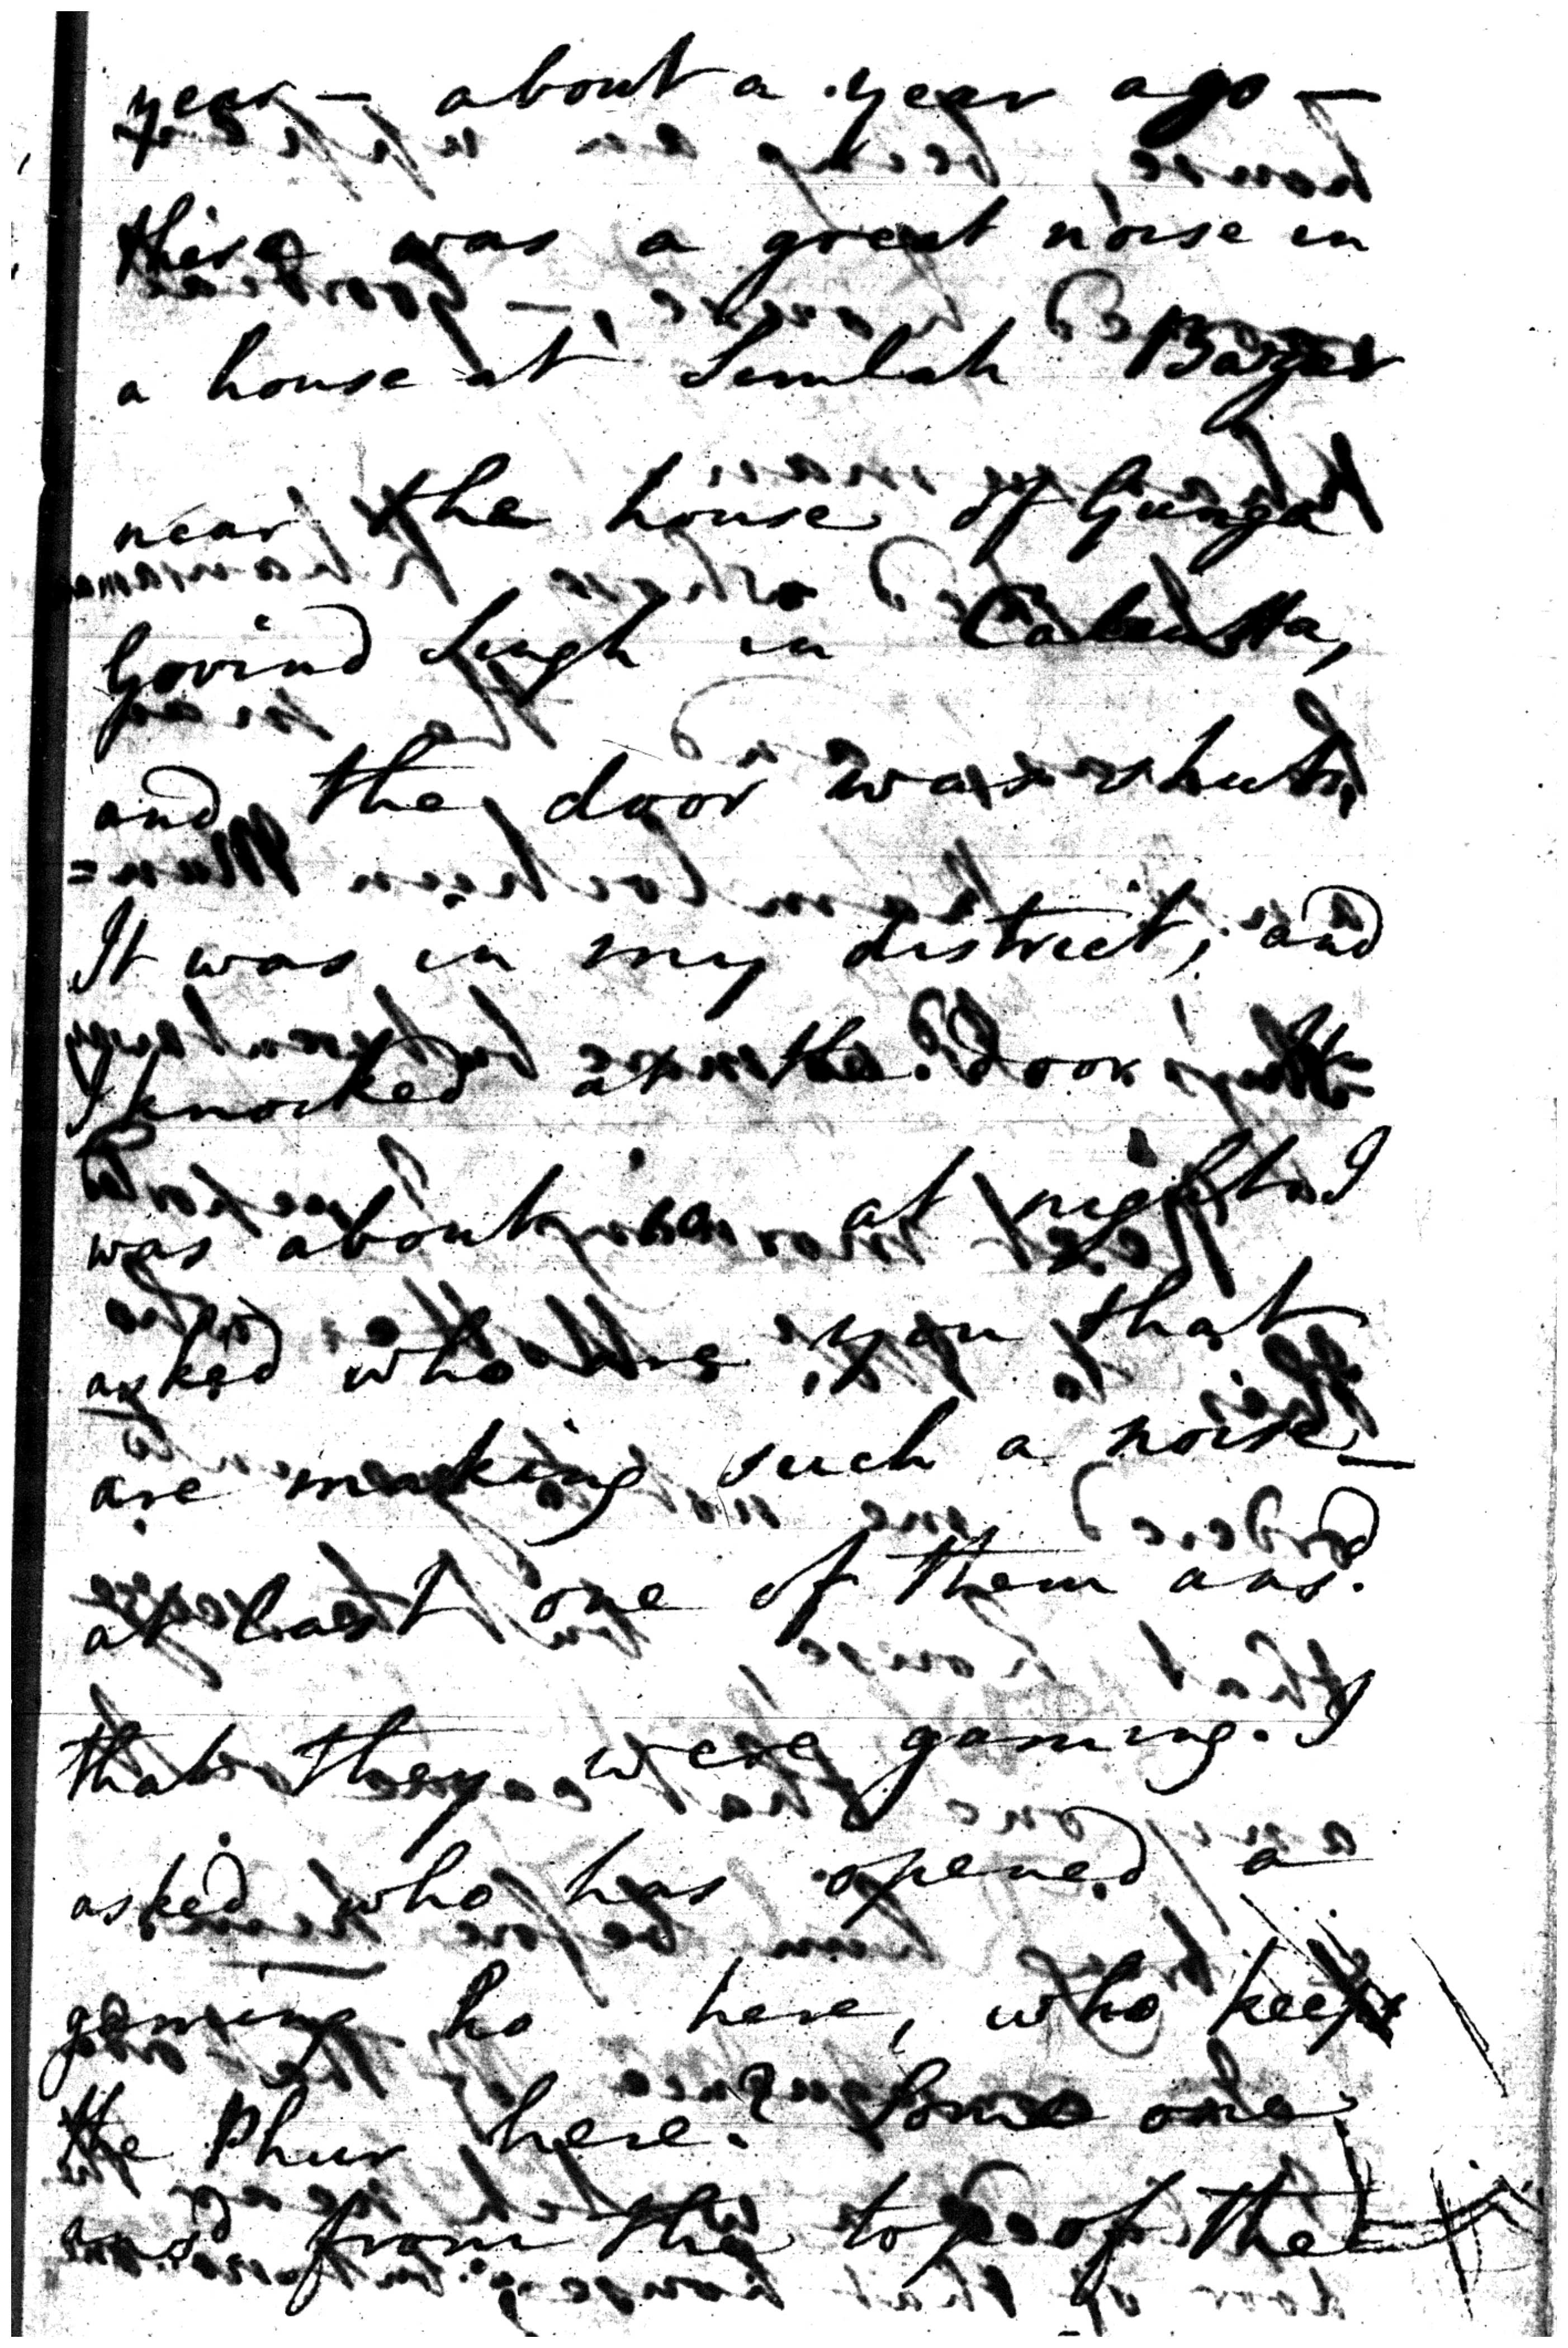 year — about a year ago —
there was a great noise in
a house at Simlah Bazar
near the house of Gunga
Govind Singh in Calcutta,
and the door was shut,
It was in my district, and
I knocked at the door It
was about 10 at night I
asked who are you that
are making such a noise —
at last one of them ans.
that they were gaming. I
asked who has opened a
gaming ho here, who keeps
the Phur here. Some one
ansd from the top of the